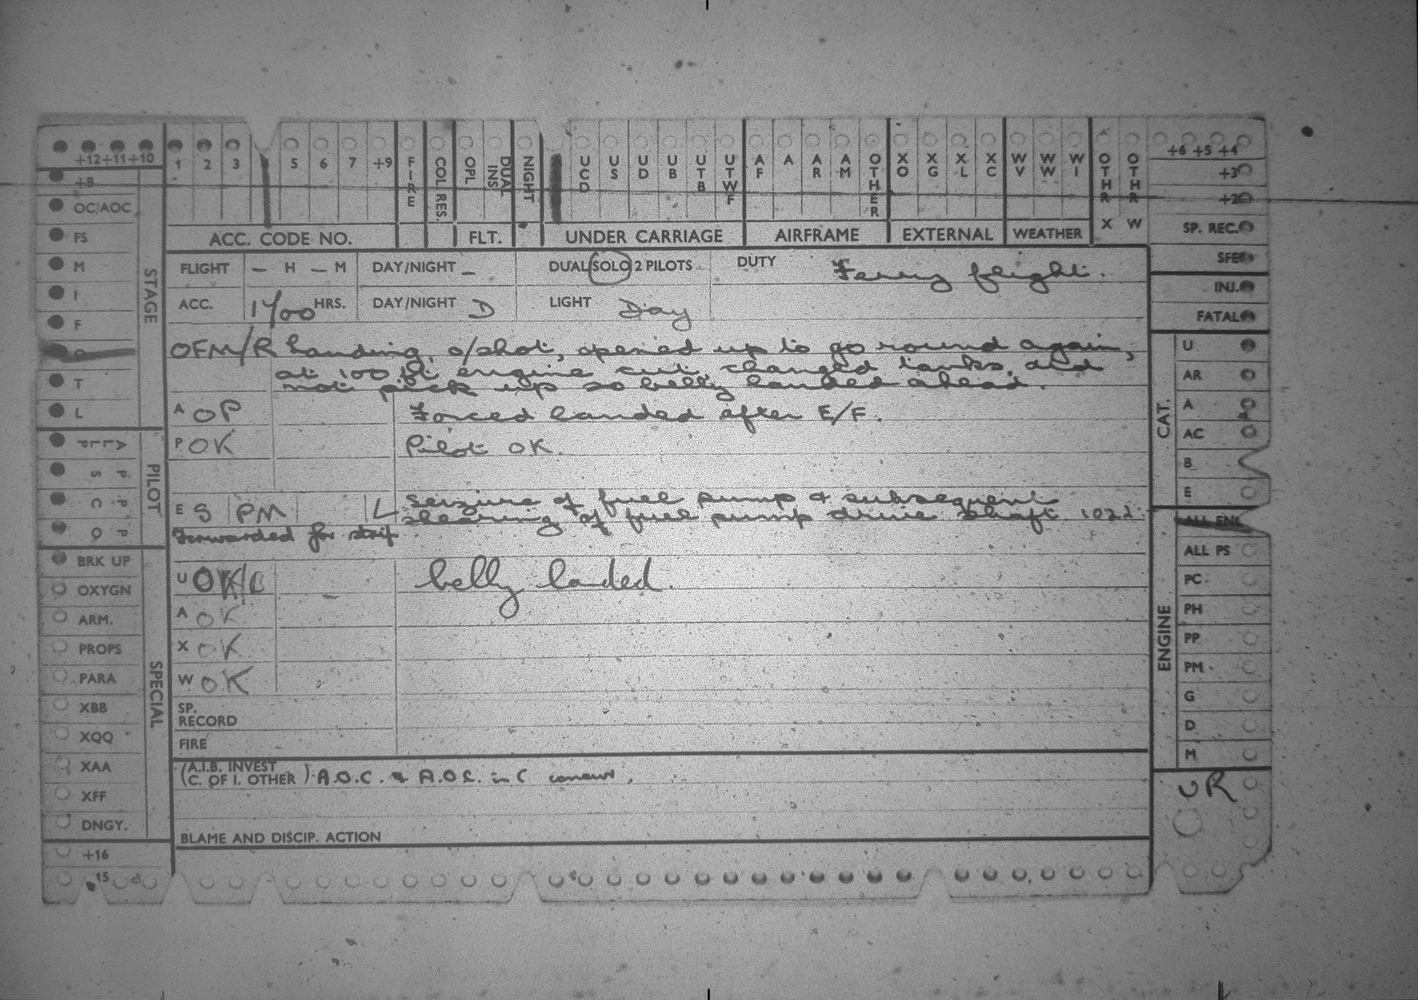 +12+11+10 1 2 3 5 6 7 +9 FIRE COL RES. OPL DUAL INS NIGHT UCD US UD UB UTB UTWF AF A AR AM OTHER XO XG XL XC WV WW WI OTHR X OTHR W +6 +5 +4
+8 +3
OC/AOC +2
FS ACC. CODE NO. FLT. UNDER CARRIAGE AIRFRAME EXTERNAL WEATHER SP. REC.
M FLIGHT – H – M DAY/NIGHT – DUAL SOLO 2 PILOTS DUTY Ferry flight. SFE
I ACC. 1700 HRS. DAY/NIGHT D LIGHT Day INJ.
F FATAL
STAGE
OFM/R Landing, o/shot, opened up to go round again,
at 100 ft engine cut, changed tanks, did
not pick up so belly landed ahead.
T
L
A OP Forced landed after E/F.
P OK Pilot OK.
CAT.
U
AR
A
AC
B
E
PILOT
ALLP
P S
P C
P O
E S PM L Seizure of fuel pump & subsequent
shearing of fuel pump drive shaft. 1022
Forwarded for strip.
U OK/L belly landed.
A OK
X OK
W OK
SP.
RECORD
FIRE
(A.I.B. INVEST
C. OF I. OTHER) A.O.C. & A.O.C. in C concur.
BLAME AND DISCIP. ACTION
SPECIAL
BRK UP
OXYGN
ARM.
PROPS
PARA
XBB
XQQ
XAA
XFF
DNGY.
+16
15
ENGINE
ALL ENG
ALL PS
PC
PH
PP
PM
G
D
M
UR